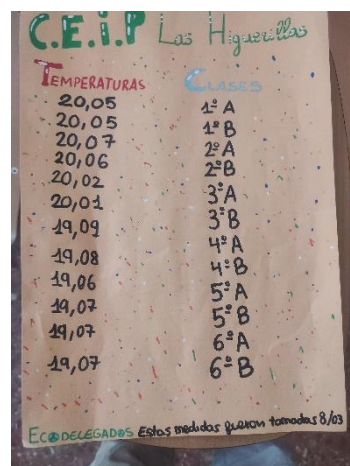 C.E.i.P Las Higuerillas
TEMPERATURAS CLASES
20,05 1º A
20,05 1º B
20,07 2º A
20,06 2º B
20,02 3º A
20,01 3º B
19,09 4º A
19,08 4º B
19,06 5º A
19,07 5º B
19,07 6º A
19,07 6º B
ECODELEGADOS Estas medidas fueron tomadas 8/03